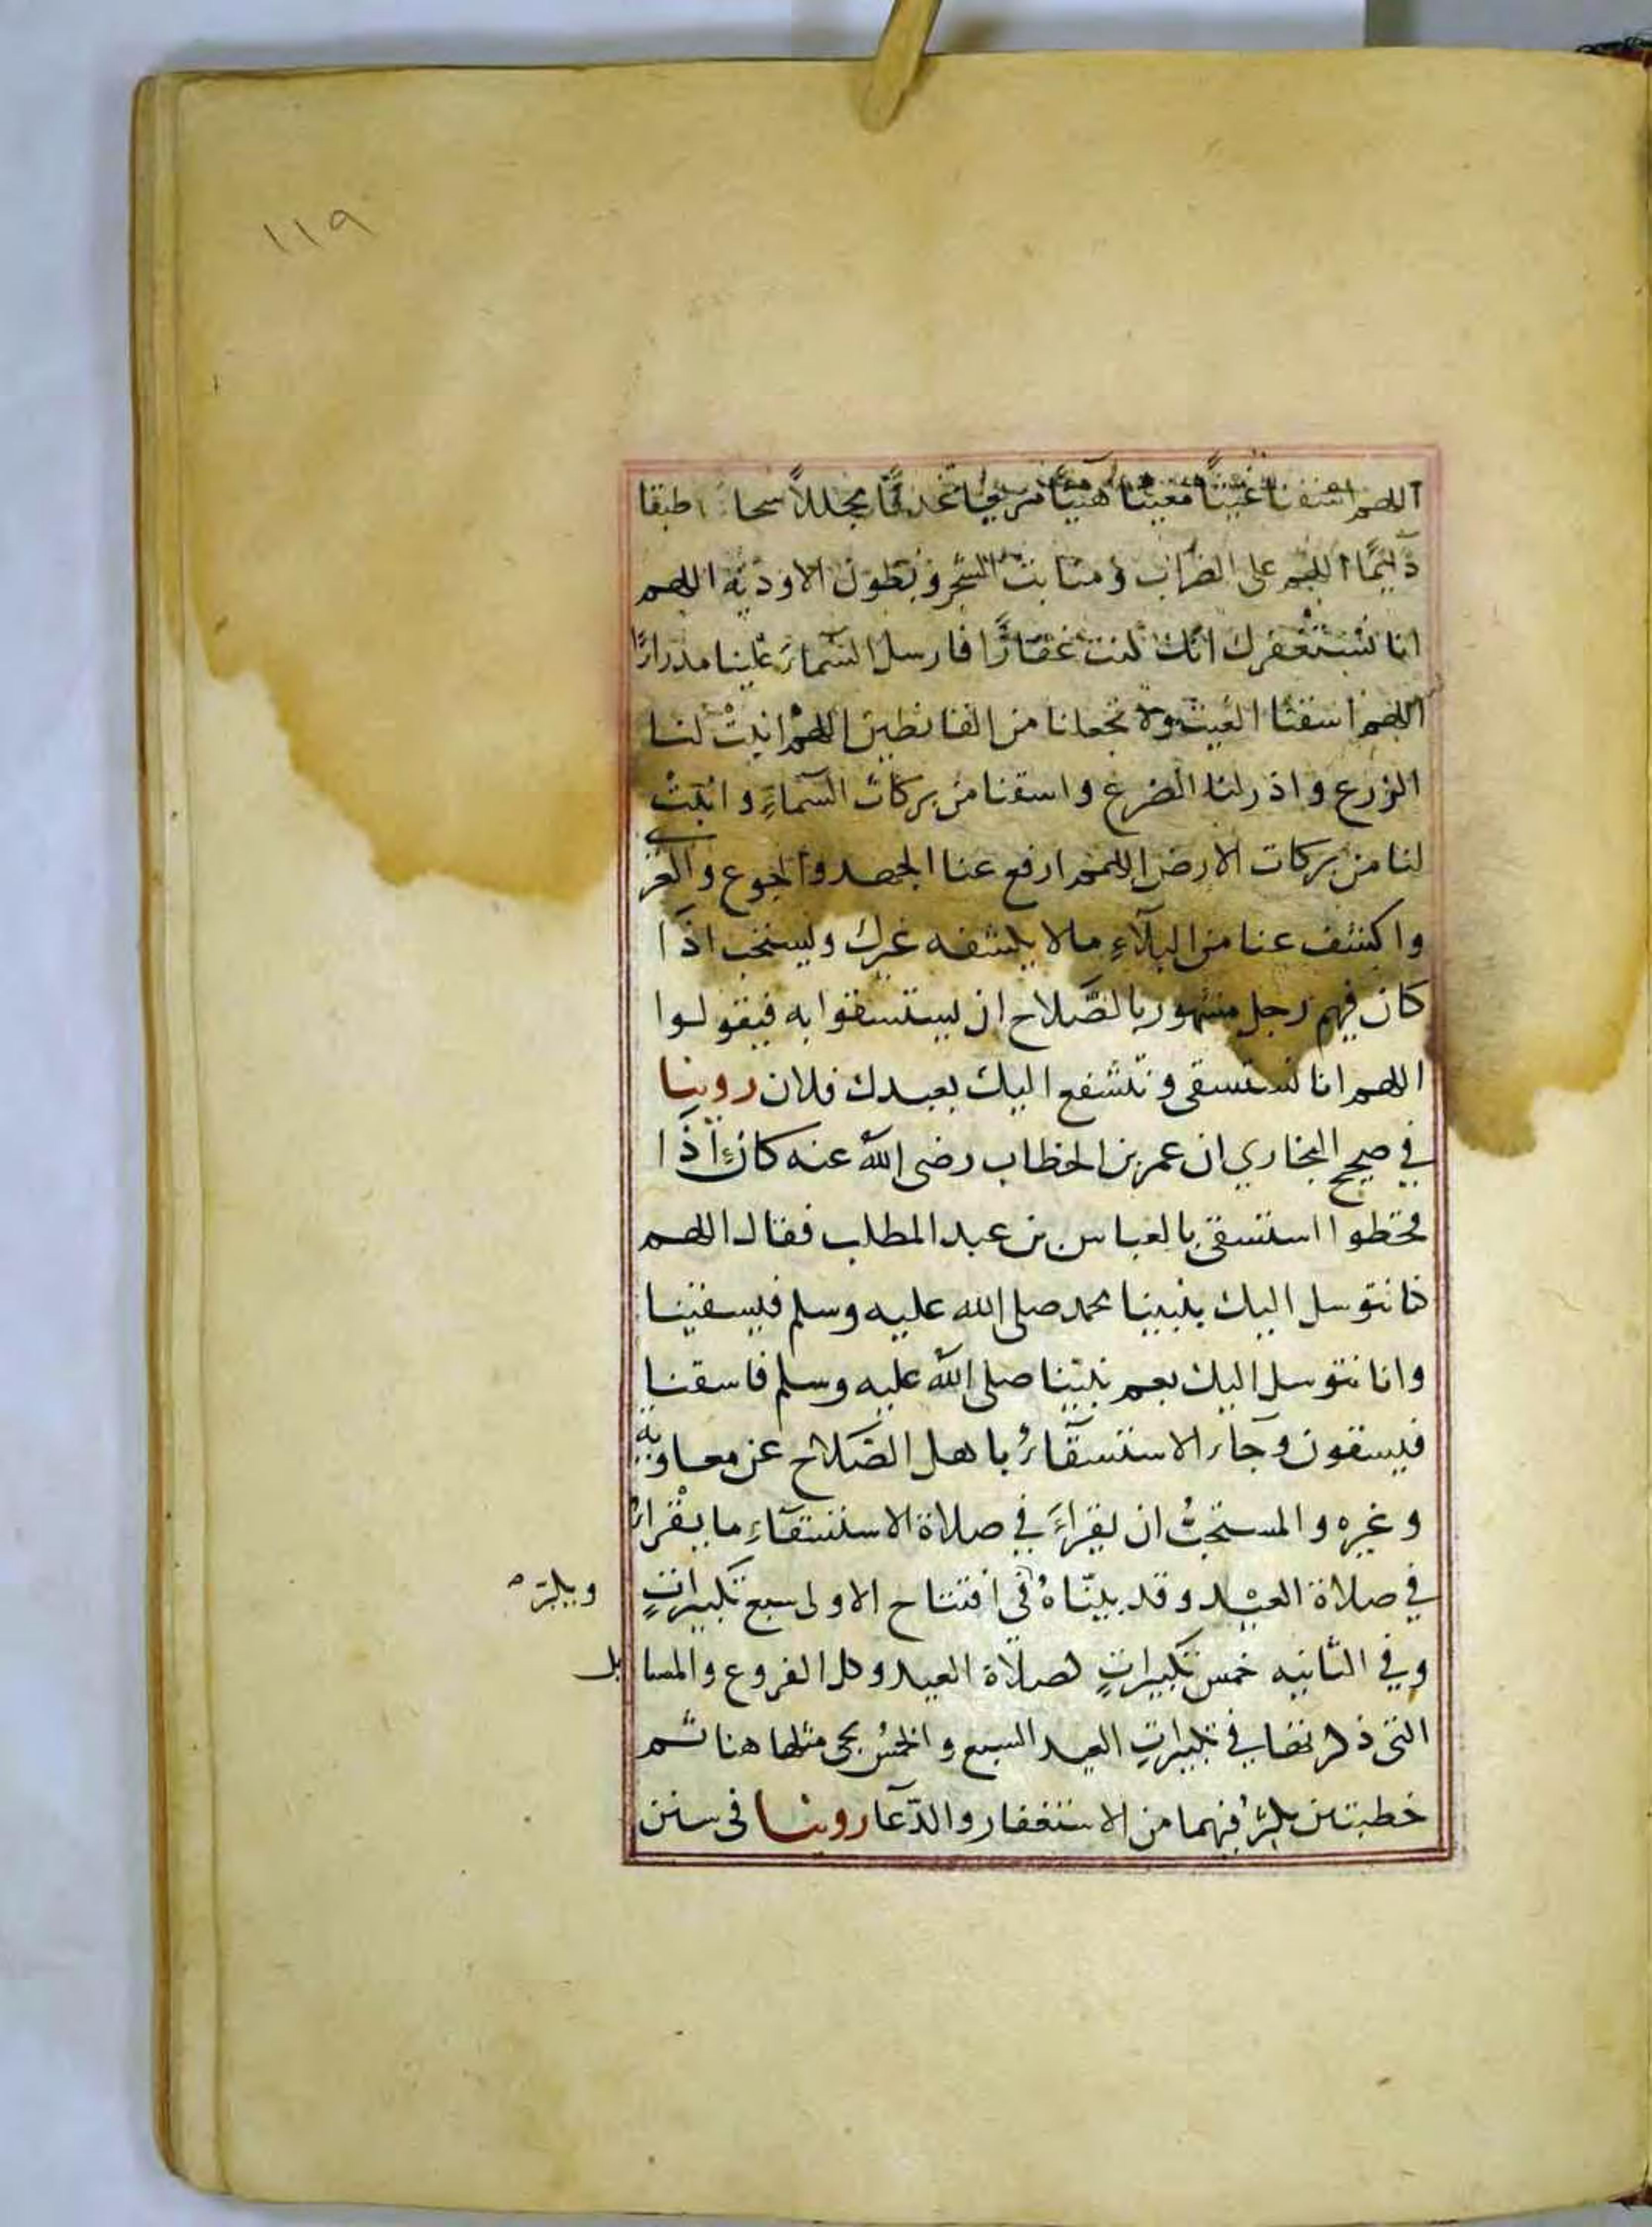 ١١٩
اللهم اسقنا غيثًا مغيثًا هنيًا مريعا غدقًا مجللاً سحا طبقا
دآئمًا اللهم على الضراب ومنابت الشجر وبطون الاودية اللهم
انا نستغفرك انك كنت غفارًا فارسل السمآء علينا مدرارًا
اللهم اسقنا الغيث ولا تجعلنا من القانطين اللهم انبتْ لنا
الزرع واذر لنا الضرع واسقنا من بركات السمآءِ وانبتْ
لنا من بركات الارض اللهم ارفع عنا الجهد والجوع والعرى
واكشف عنا من البلآءِ ما لا يكشفه غيرك ويستحب اذا
كان فيهم رجل مشهور بالصَّلاح ان يستسقوا به فيقولوا
اللهم انا نستسقى ونتشفع اليك بعبدك فلان روينا
في صحيح البخاري ان عمر بن الخطاب رضى الله عنه كان اذا
قحطوا استسقى بالعباس بن عبد المطلب فقال اللهم
كنا نتوسل اليك بنبينا محمد صلى الله عليه وسلم فتسقينا
وانا نتوسل اليك بعم نبيّنا صلى الله عليه وسلم فاسقنا
فيسقون وجآء الاستسقآءُ باهل الصَّلاح عن معاوية
وغيره والمستحبُّ ان يقراءَ في صلاة الاستسقآءِ ما يقراءُ
في صلاة العيْد وقد بيّناهُ فى افتتاح الاولى سبع تكبيراتٍ
ويكبّر
وفي الثانيه خمس تكبيراتٍ كصلاة العيد وكل الفروع والمسايل
التى ذكرتها في تكبيراتِ العيد السبع والخمسُ يجى مثلها هنا ثم
خطبتين يكثرُ فيهما من الاستغفار والدّعآ روينا فى سنن